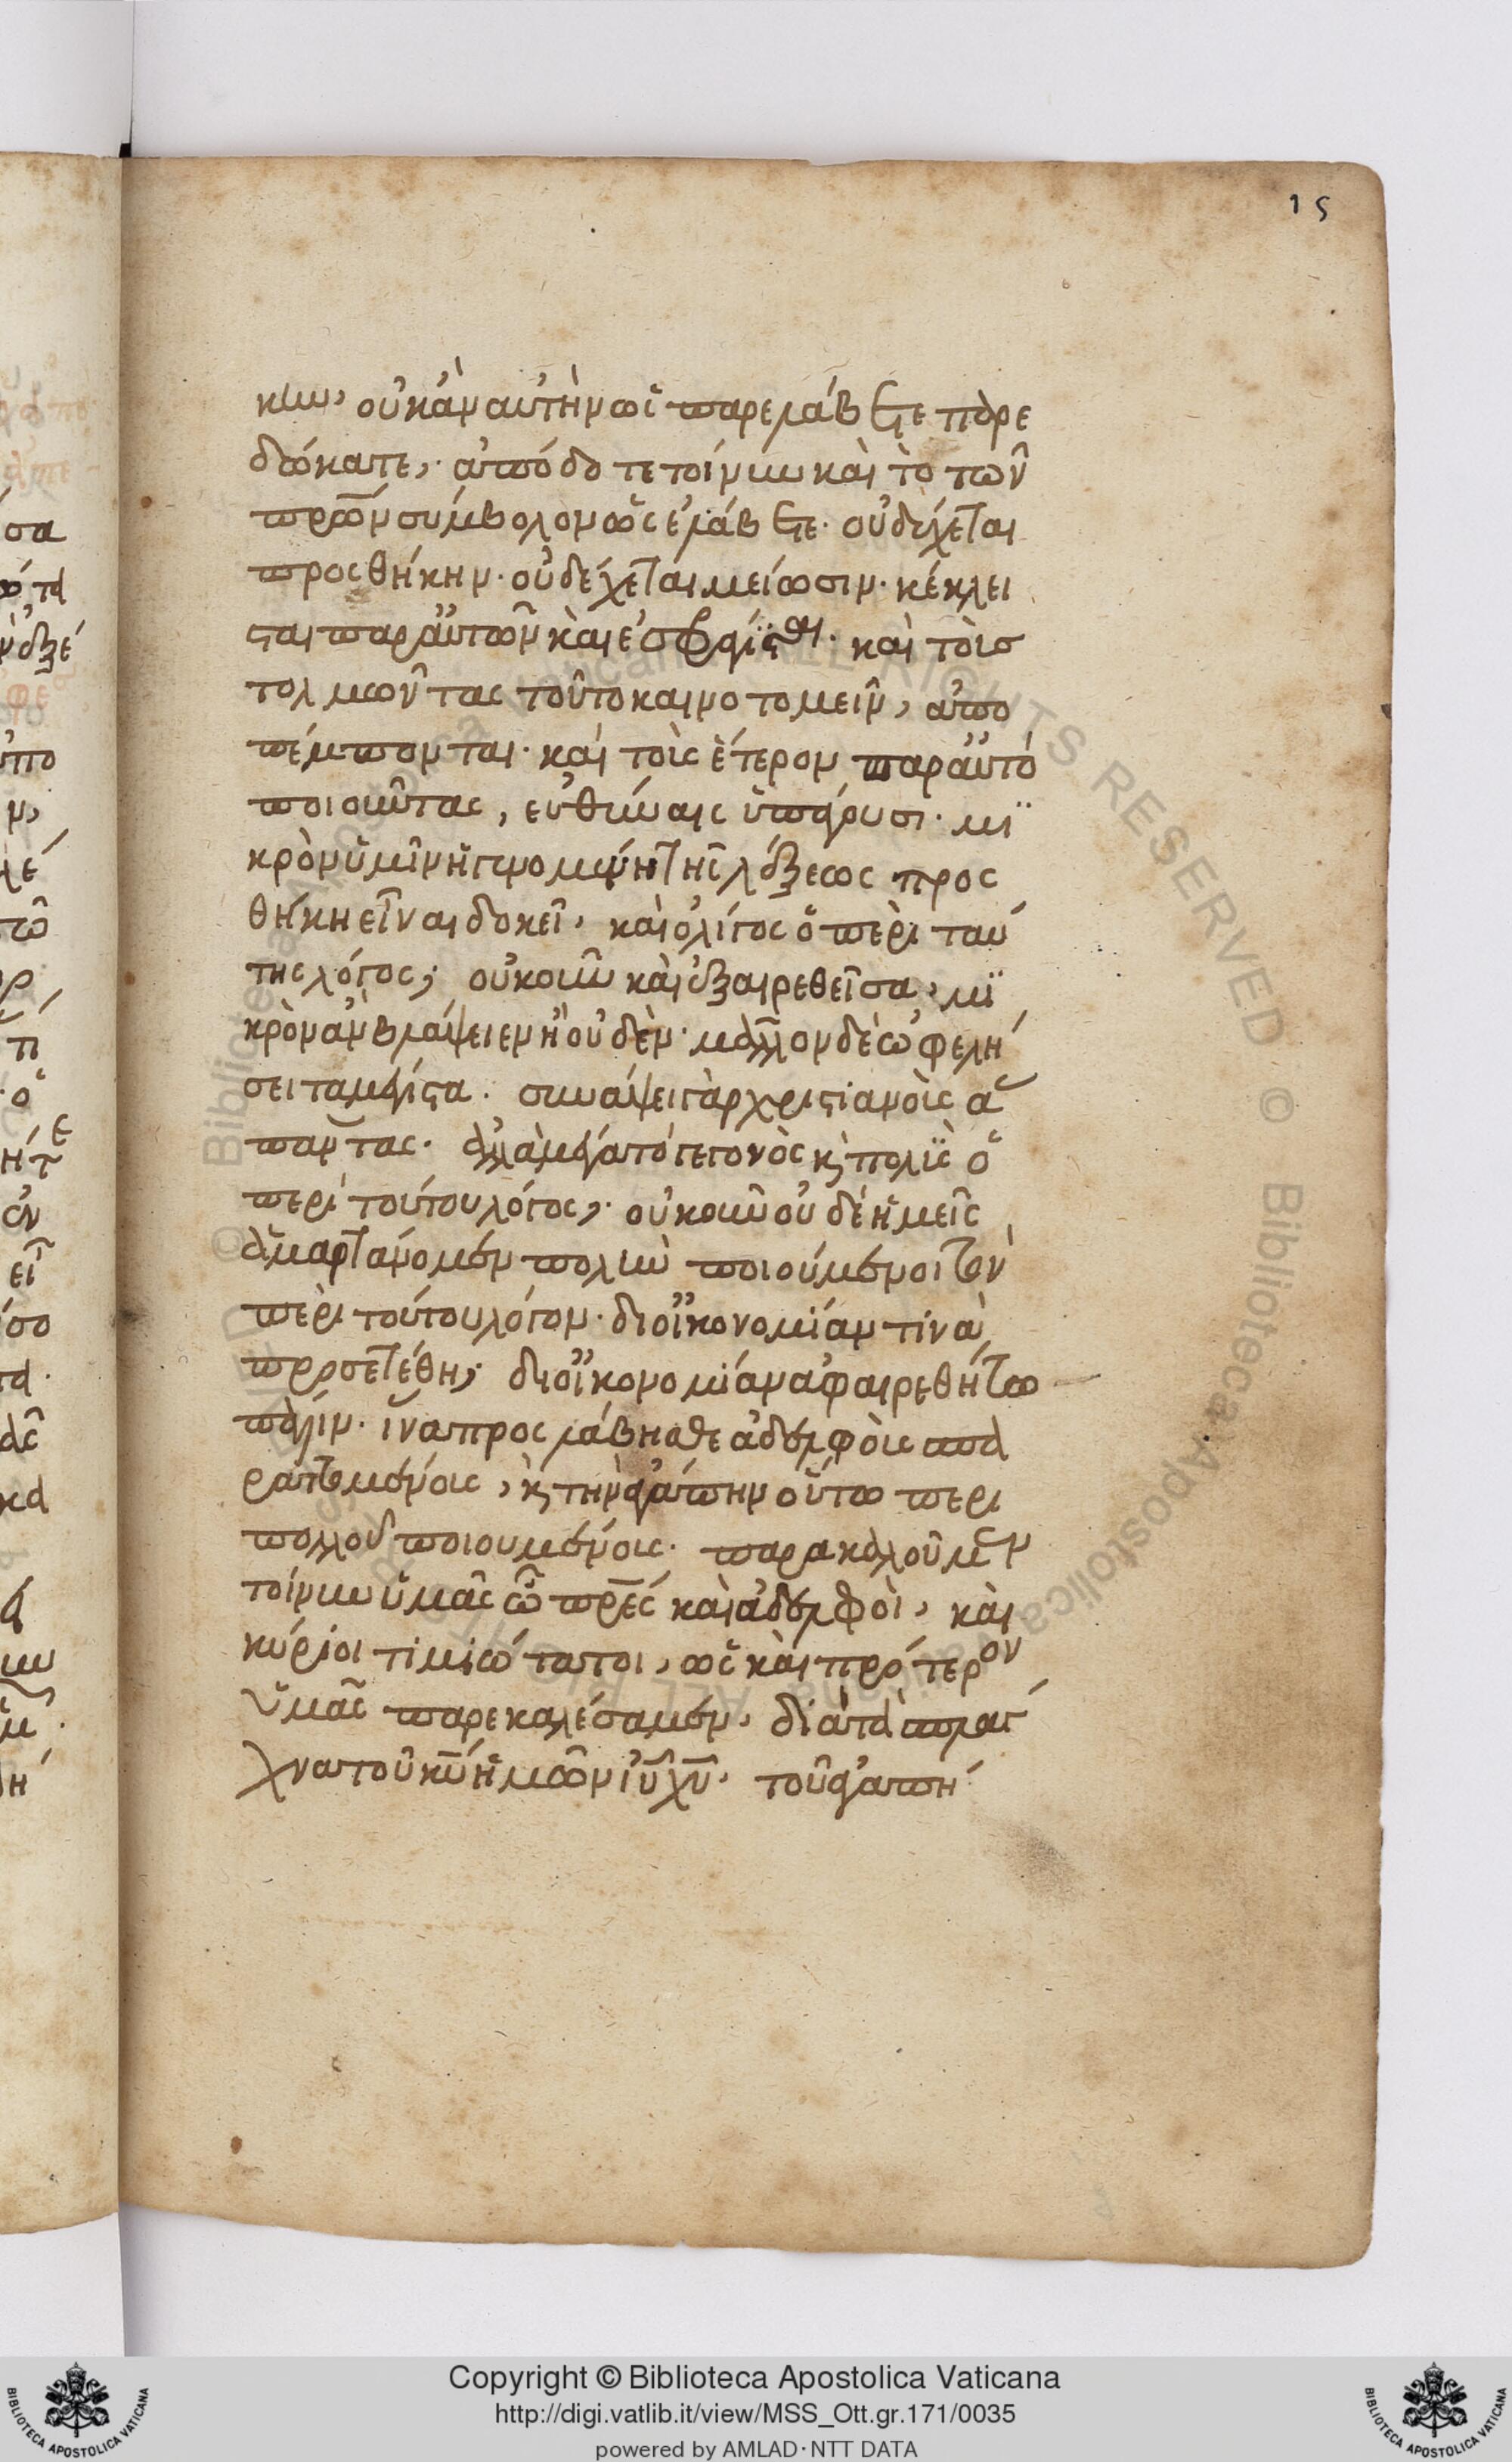 15
κην, οὐκ ἂν αὐτὴν ὡς παρελάβετε παρε
δώκατε,· ἀπόδοτε τοίνυν καὶ τὸ τῶν
πρῶν σύμβολον ὡς ἐλάβετε· οὐ δέχεται
προσθήκην· οὐ δέχεται μείωσιν· κέκλει
σται παρ' αὐτῶν καὶ ἐσφράγισται· καὶ τοὺς
τολμῶντας τοῦτο καινοτομεῖν, ἀπο
πέμπονται· καὶ τοὺς ἕτερον παρ' αὐτὸ
ποιοῦντας, εὐθύναις ὑπάγουσι· μϊ
κρὸν ὑμῖν ἡ γενομένη τῆς λέξεως προσ
θήκη εἶναι δοκεῖ, καὶ ὀλίγος ὁ περὶ ταύ
της λόγος; οὐκοῦν καὶ ἐξαιρεθεῖσα, μϊ
κρὸν ἂν βλάψειεν ἢ οὐδέν· μᾶλλον δὲ ὠφελή
σει τὰ μέγιστα. συνάψει γὰρ χριστιανοὺς ἅ
παντας· ἀλλὰ μέγα τὸ γεγονὸς κ πολὺς ὁ
περὶ τούτου λόγος,· οὐκοῦν οὐδὲ ἡμεῖς
ἁμαρτάνομεν πολὺν ποιούμενοι τὸν
περὶ τούτου λόγον· δι' οἰκονομίαν τινὰ
προσετέθη; δι' οἰκονομίαν ἀφαιρεθήτω
πάλιν· ἵνα προσλάβησθε ἀδελφοὺς σπα
ραττομένους, κ τὴν ἀγάπην οὕτω περὶ
πολλοῦ ποιουμένους· παρακαλοῦμεν
τοίνυν ὑμᾶς ὦ πρες καὶ ἀδελφοὶ, καὶ
κύριοι τιμιώτατοι, ὡς καὶ πρότερον
ὑμᾶς παρεκαλέσαμεν, διὰ τὰ σπλάγ
χνα τοῦ κυ ἡμῶν ιυ χυ· τοῦ ἀγαπή
Copyright © Biblioteca Apostolica Vaticana
http://digi.vatlib.it/view/MSS_Ott.gr.171/0035
powered by AMLAD·NTT DATA